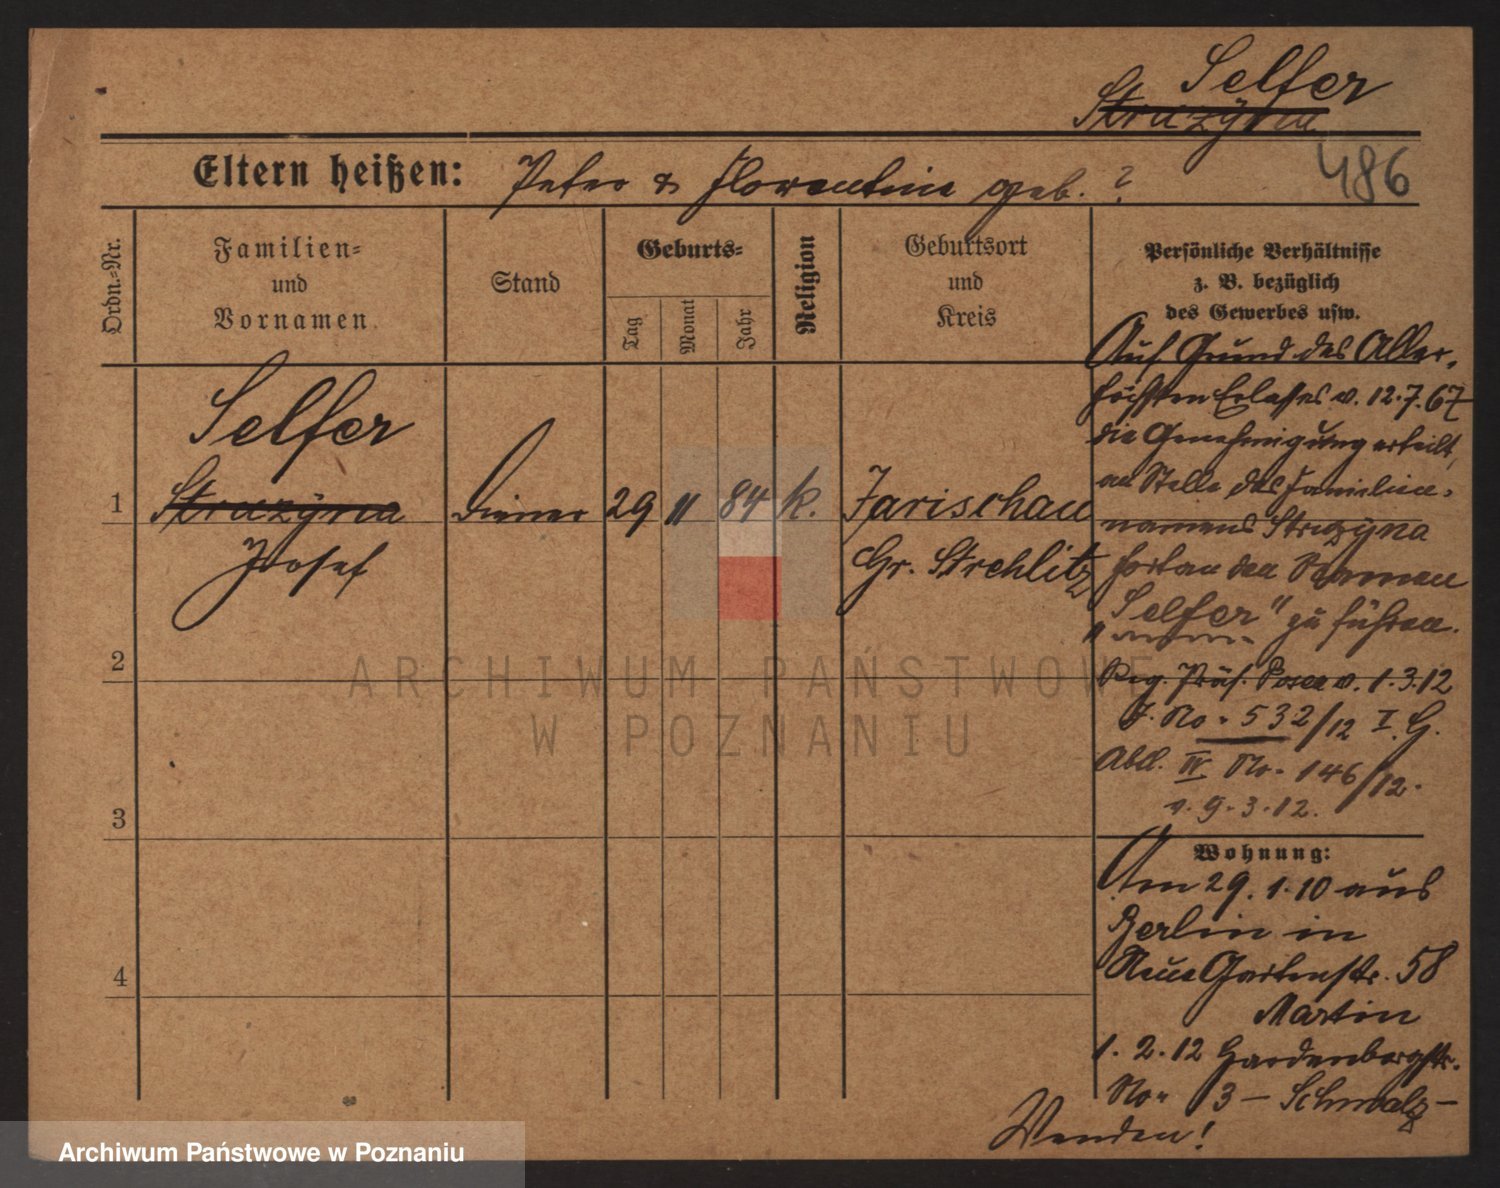 Selfer
Struzyna
486
Eltern heißen: Peter & Florentine geb. ?
Ordn.-Nr.
Familien-
und
Vornamen
Stand
Geburts-
Tag
Monat
Jahr
Religion
Geburtsort
und
Kreis
Persönliche Verhältnisse
z. B. bezüglich
des Gewerbes usw.
Selfer
1 Struzyna Diener 29 11 84 k. Jarischau
Josef Gr. Strehlitz
2
3
4
Auf Grund des Aller-
höchsten Erlasses v. 12.7.67
die Genehmigung erteilt,
an Stelle des Familien-
namens Struzyna
fortan den Namen
"Selfer" zu führen.
Reg. Präs. Posen v. 1.3.12
J. No. 532/12 I. G.
Abtl. IV No. 146/12.
v. 9.3.12.
Wohnung:
Am 29.1.10 aus
Berlin in
Neue Gartenstr. 58
Martin
1.2.12 Hardenbergstr.
No. 3 – Schmalz –
Wenden!
ARCHIWUM PAŃSTWOWE
W POZNANIU
Archiwum Państwowe w Poznaniu